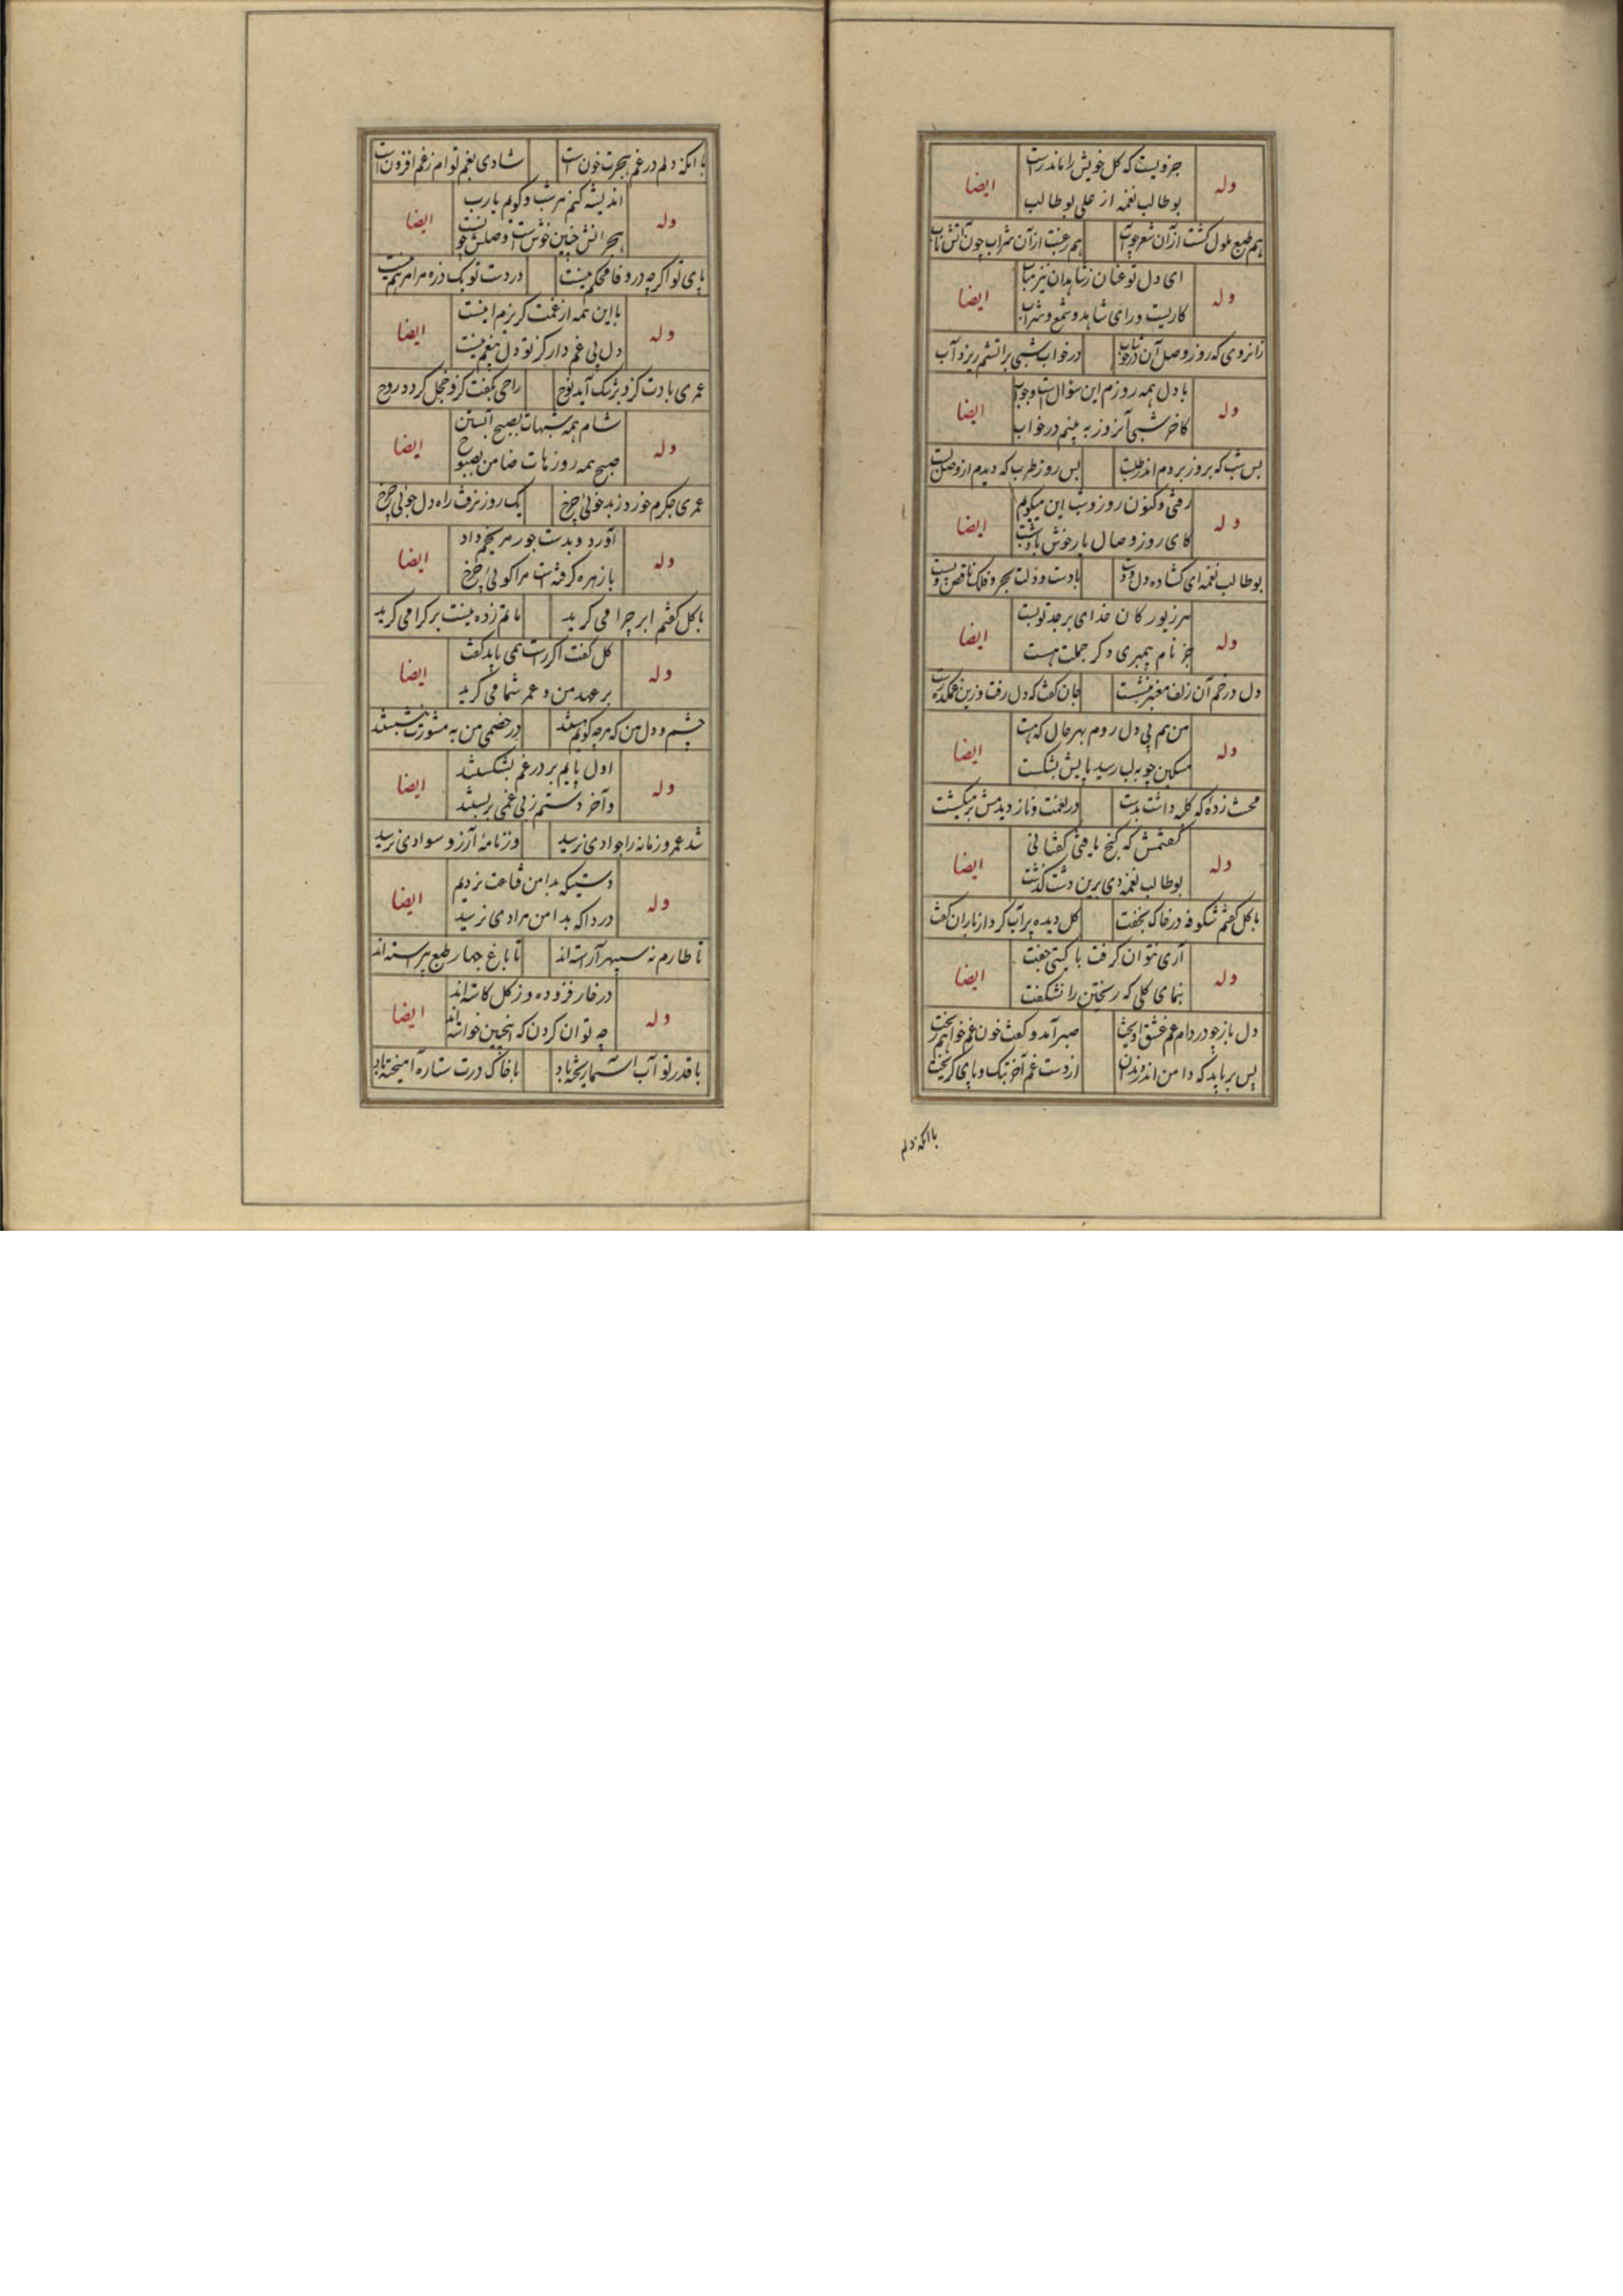 جزویست که کل خویش را ماندرست
وله ایضا
بوطالب نغمه از علی بوطالب
هم طبع ملول گشت ازان شعر چو آب هم رغبت ازان شراب چون آتش ناب
ای دل تو عنان ز شاهدان نیز متاب
وله ایضا
کاریست ورای شاهد و شمع و شراب
زانروی که روز وصل آن در خوشاب در خواب شبی بر آتشم ریزد آب
با دل همه روزم این سؤالست و جواب
وله ایضا
کاخر شبی آنروز به بینم در خواب
بس شب که بروز بردم اندر طلبت بس روز طرب که دیدم از وصل لبت
رفتی و کنون روز و شب این میگویم
وله ایضا
کای روز وصال یار خوش باد شبت
بوطالب نغمه ای گشاده دل و دست با دست و دلت بحر و فلک ناقص و پست
هر زیور کان خدای بر جد تو بست
وله ایضا
جز نام پیمبری دگر جملت هست
دل در خم آن زلف معنبر بنشست جان گفت که دل رفت وزین غمکده رست
من هم پی دل روم بهر حال که هست
وله ایضا
مسکین چو به لب رسید پایش بشکست
محنت زدهٔ که کلبه داشت بدشت در نعمت و ناز دیدمش بر میگشت
گفتمش که گنج یافتی گفتا نی
وله ایضا
بوطالب نغمه دی برین دشت گذشت
با گل گفتم شکوفه در خاک بخفت گل دیده پر آب کرد از باران گفت
آری نتوان گرفت با گیتی جفت
وله ایضا
بنمای گلی که ریختن را نشکفت
دل باز چو در دام غم عشق آویخت صبر آمد و گفت خون غم خواهم ریخت
بس بر نامد که دامن اندر دندان از دست غم آخر بتک و پای گریخت
با آنکه دلم
با آنکه دلم در غم هجرت خونست شادی بغم توام ز غم افزونست
اندیشه کنم هر شب و گویم یارب
وله ایضا
هجرانش چنین خوشست وصلش چونست
پای تو اگرچه در وفا محکم نیست در دست تو یک ذره مرا مرهم نیست
با این همه از غمت گریزم نیست
وله ایضا
دل بی غم دار کز تو دل بیغم نیست
عمری بادت کزو برشک آید نوح راحی بکفت کزو خجل گردد روح
شام همه شبهات بصبح آبستن
وله ایضا
صبح همه روزهات ضامن بصبوح
عمری جگرم خورد ز بدخوئی چرخ یک روز نرفت راه دلجوئی چرخ
آورد و بدست جور مریخم داد
وله ایضا
با زهره گرفته است مرا گوئی چرخ
با گل گفتم ابر چرا می گرید ماتم زده نیست بر کرا می گرید
گل گفت اگر راست همی باید گفت
وله ایضا
بر عهد من و عمر شما می گرید
چشم و دل من که هرچه گویم هستند در خصمی من به مشورت بنشستند
اول پایم بر در غم بشکستند
وله ایضا
وآخر دستم ز بی غمی بربستند
شد عمر و زمانه را جوادی نرسید وز نامهٔ آرزو سوادی نرسید
دستیکه بدامن قناعت نزدیم
وله ایضا
دردا که بدامن مرادی نرسید
تا طارم نه سپهر آراسته اند تا باغ چهار طبع پیراسته اند
در خار فزوده وز گل کاسته اند
وله ایضا
چه توان کردن که اینچنین خواسته اند
با قدر تو آب آسمان ریخته باد با خاک درت ستاره آمیخته باد